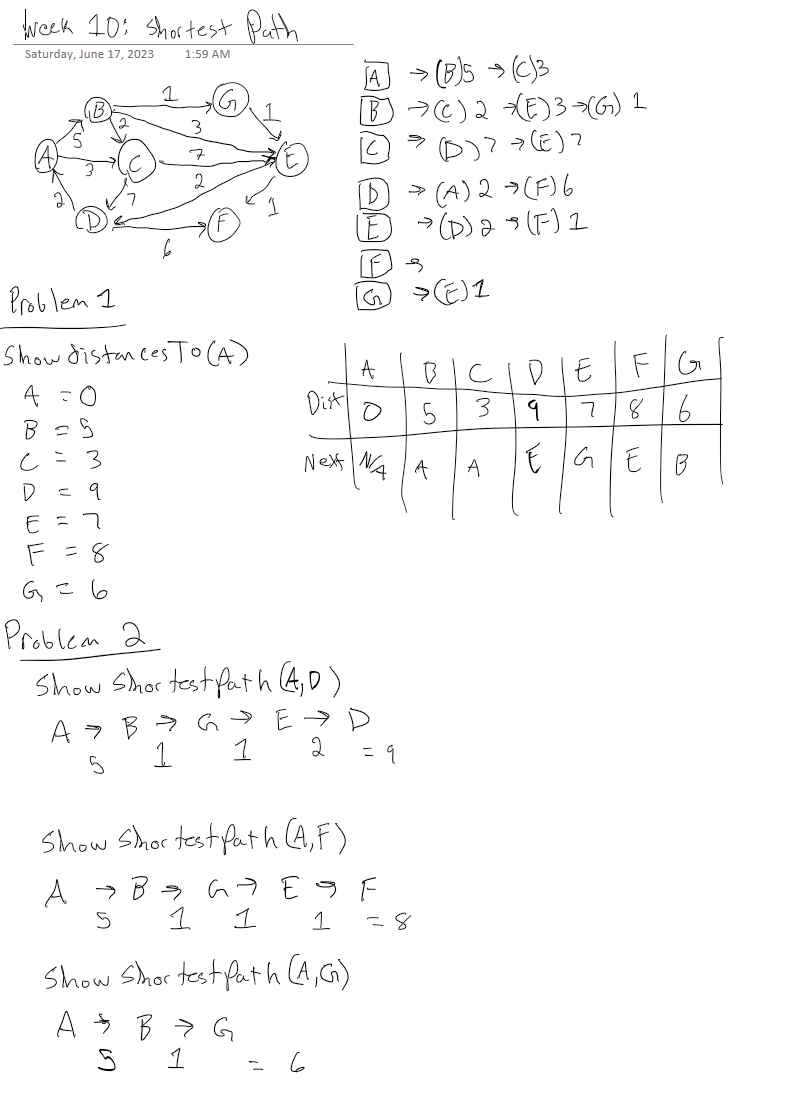 Week 10: Shortest Path
Saturday, June 17, 2023 1:59 AM
A → (B)5 → (C)3
B → (C) 2 → (E) 3 → (G) 1
C → (D) 7 → (E) 7
D → (A) 2 → (F) 6
E → (D) 2 → (F) 1
F →
G → (E) 1
B 1 G 1
5 2 3
A 3 C 7 E
2 7 2
D F 1
6
Problem 1
Show distancesTo(A)
A = 0
B = 5
C = 3
D = 9
E = 7
F = 8
G = 6
A B C D E F G
Dist 0 5 3 9 7 8 6
Next N/A A A E G E B
Problem 2
Show shortestpath(A,D)
A → B → G → E → D
5 1 1 2 = 9
Show shortestpath(A,F)
A → B → G → E → F
5 1 1 1 = 8
Show shortestpath(A,G)
A → B → G
5 1 = 6